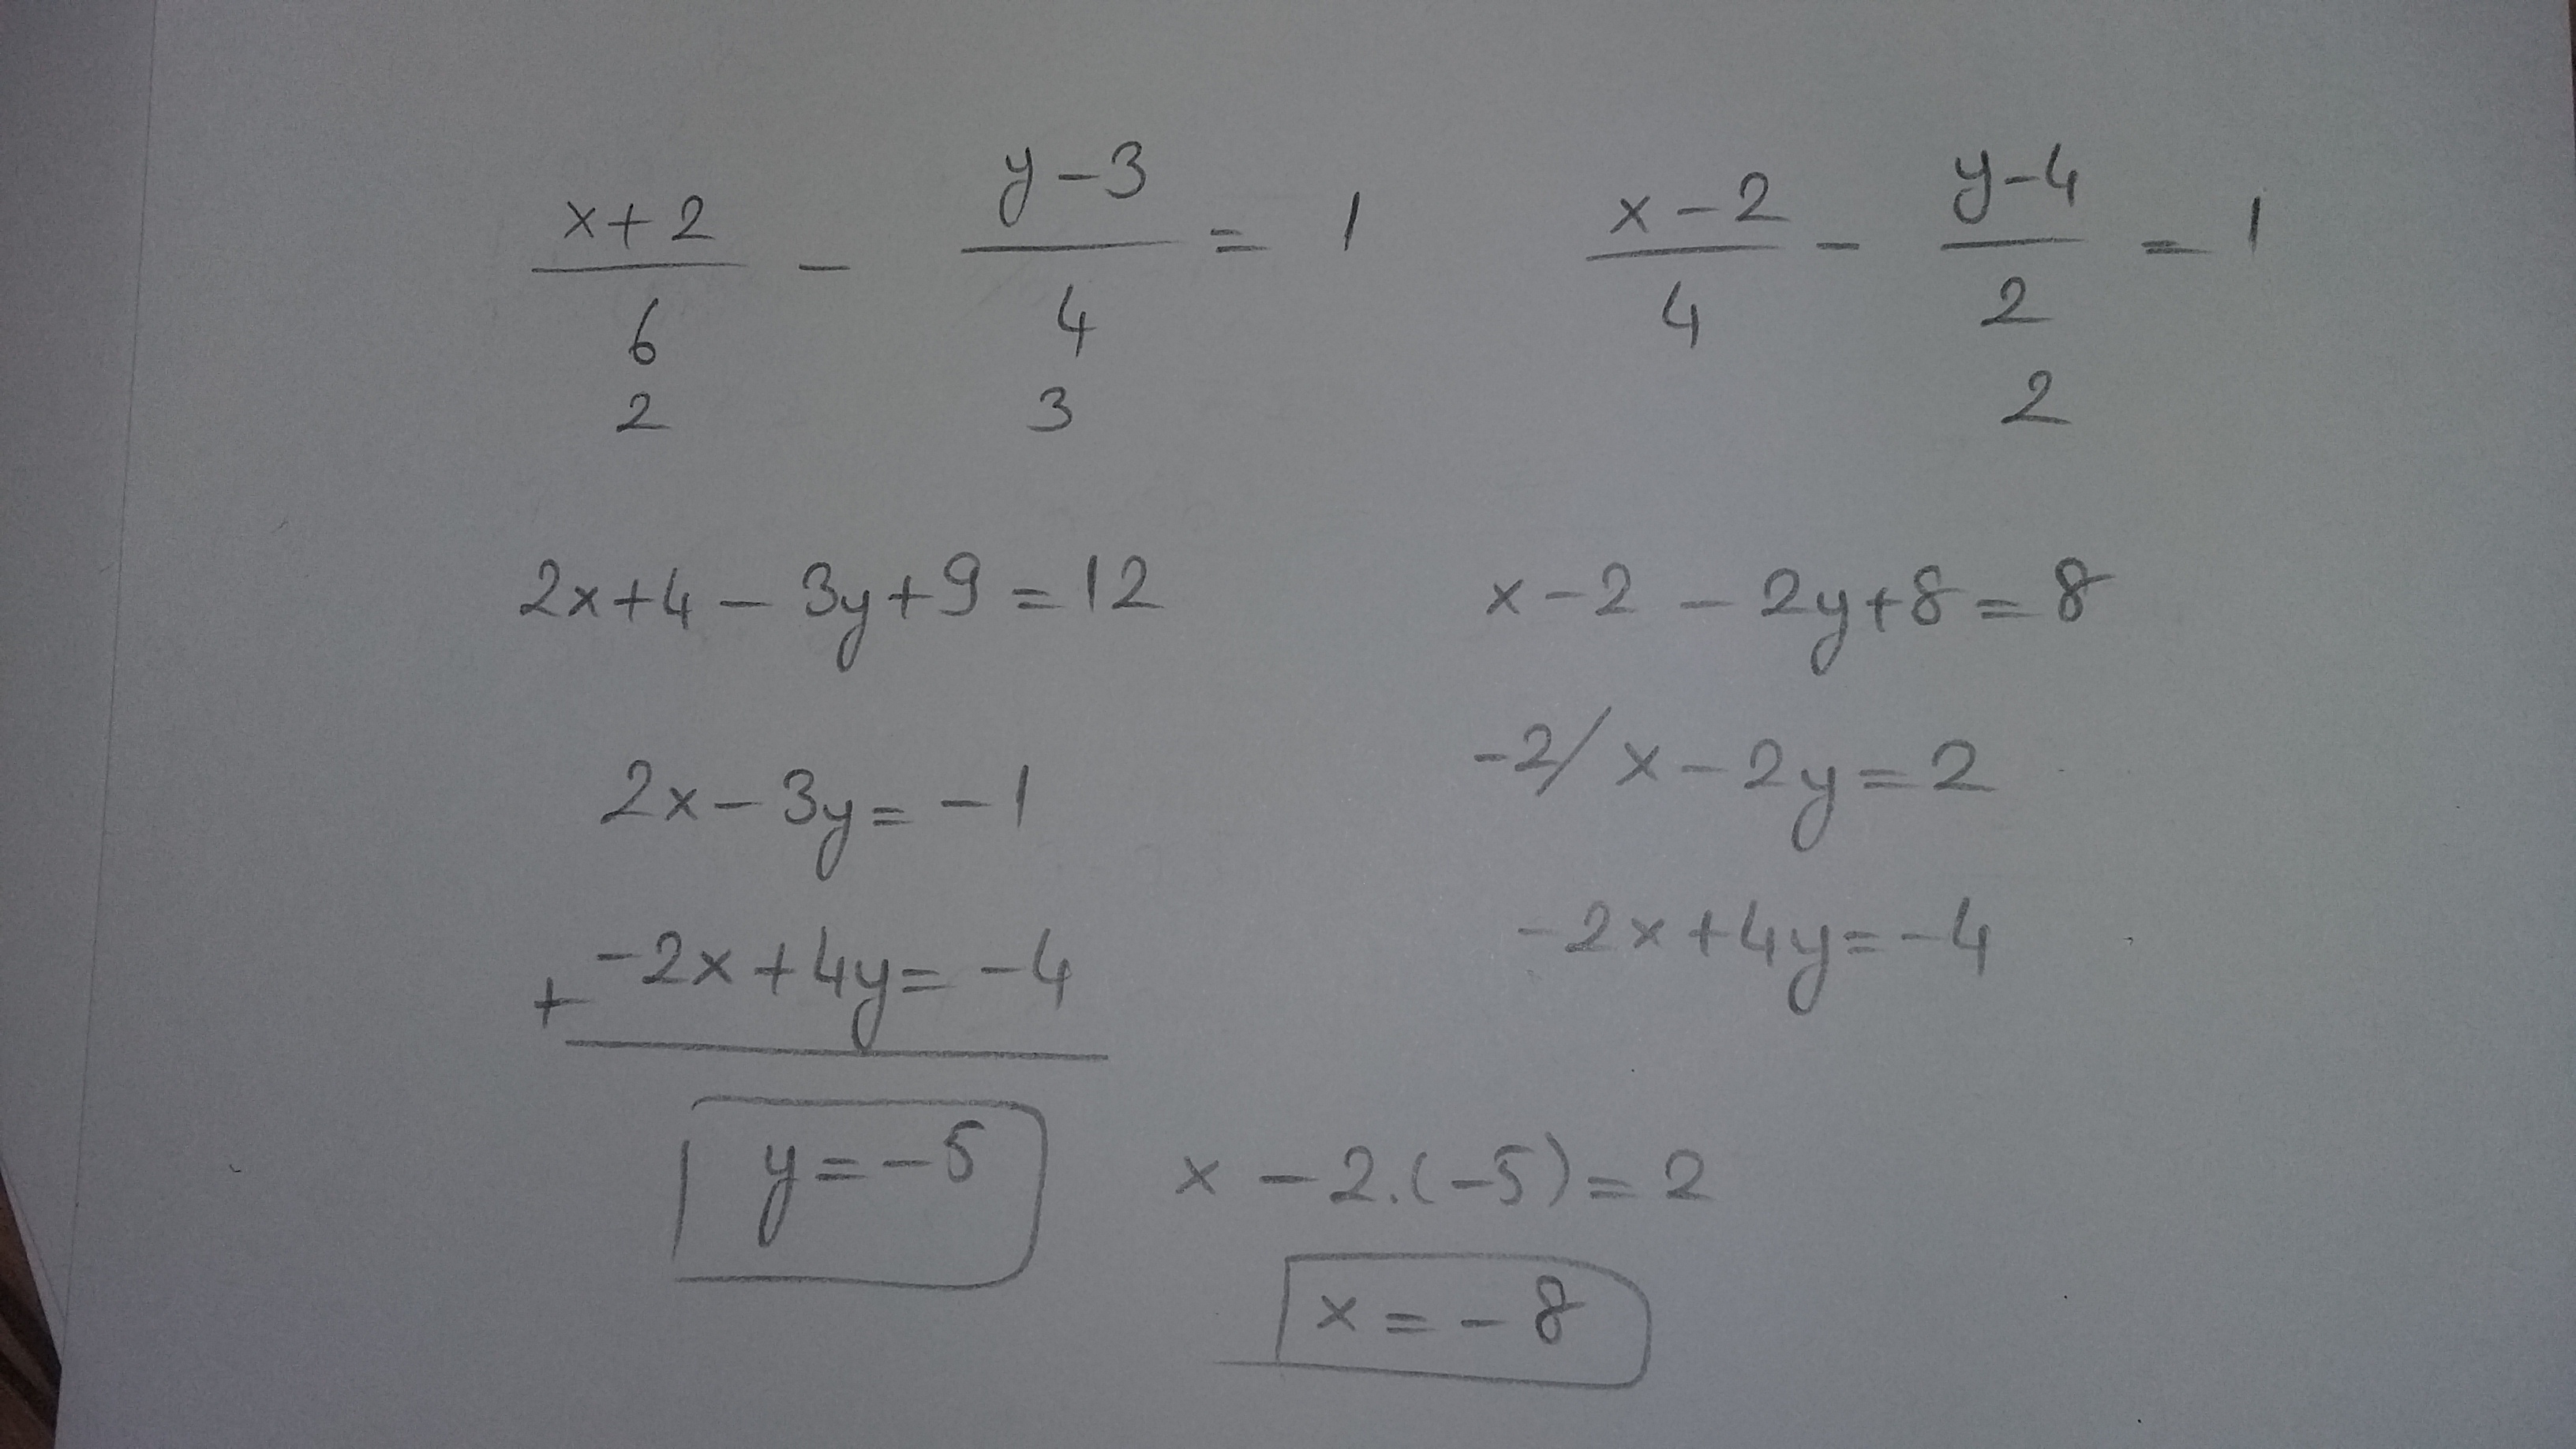 x+2/6 - y-3/4 = 1
2 3
2x+4-3y+9=12
2x-3y=-1
+ -2x+4y=-4
y=-5
x-2/4 - y-4/2 = 1
2
x-2-2y+8=8
-2/ x-2y=2
-2x+4y=-4
x-2.(-5)=2
x=-8